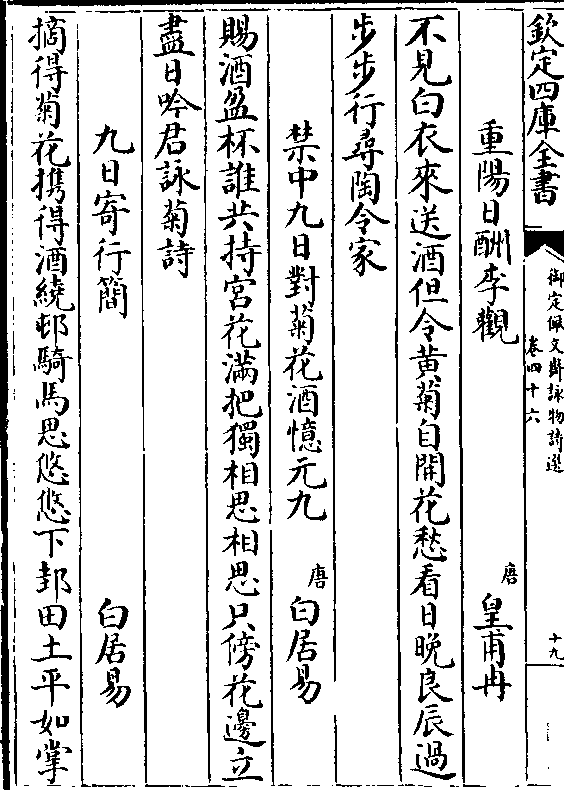 欽定四庫全書
御定佩文齋詠物詩選
卷四十六
十九
重陽日酬李觀 唐 皇甫冉
不見白衣來送酒但令黄菊自開花愁看日晚良辰過
步步行尋陶令家
禁中九日對菊花酒憶元九 唐 白居易
賜酒盈杯誰共持宫花滿把獨相思相思只傍花邊立
盡日吟君詠菊詩
九日寄行簡 白居易
摘得菊花携得酒繞邨騎馬思悠悠下邽田土平如掌